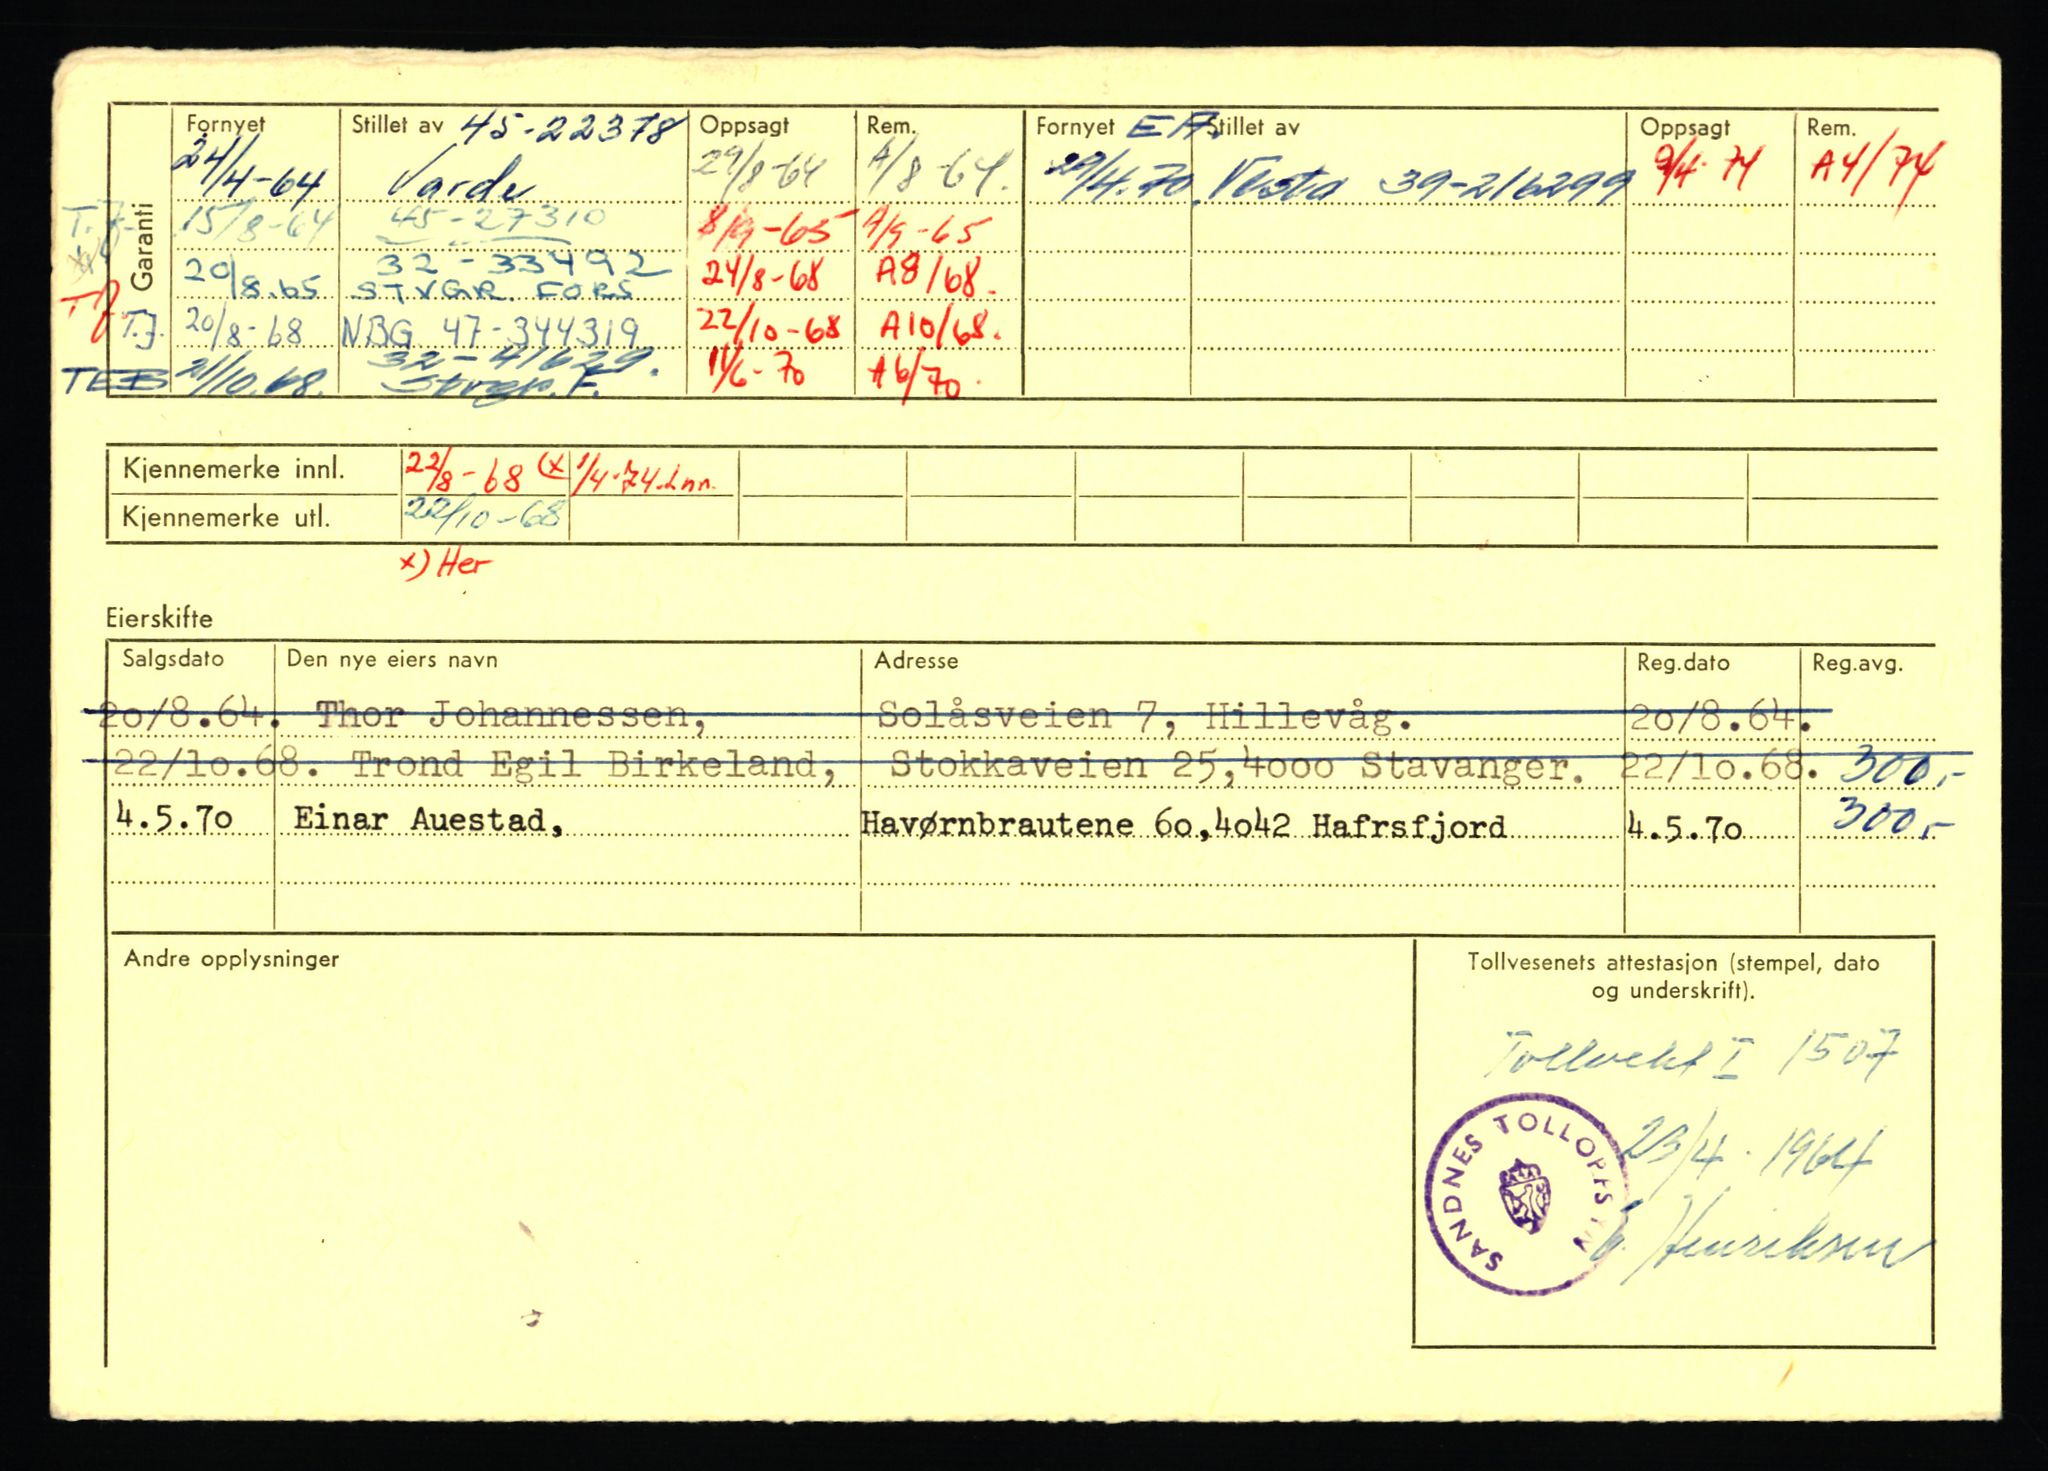 Garanti
Fornyet Stillet av 45-22378 Oppsagt Rem. Fornyet E A. Stillet av Oppsagt Rem.
24/4-64 Varde 29/8-64 A/8-64. 29/4.70. Vesta 39-216299 9/4-74 A4/74
T.J. 15/8-64 45-27310 8/9-65 A/9-65
20/8.65 32-33492 24/8-68 A8/68.
STVGR. FORS
T.J. 20/8-68 NBG 47-344319 22/10-68 A10/68.
TEB 21/10.68. 32-41629. 11/6-70 A6/70.
Stvgr. F.
Kjennemerke innl. 22/8-68 (x 1/4-74.Inn.
Kjennemerke utl. 22/10-68
x) Her
Eierskifte
Salgsdato Den nye eiers navn Adresse Reg.dato Reg.avg.
20/8.64. Thor Johannessen, Solåsveien 7, Hillevåg. 20/8.64.
22/10.68. Trond Egil Birkeland, Stokkaveien 25,4000 Stavanger. 22/10.68. 300,-
4.5.70 Einar Auestad, Havørnbrautene 60,4042 Hafrsfjord 4.5.70 300,-
Andre opplysninger
Tollvesenets attestasjon (stempel, dato
og underskrift).
I 1507
23/4.1964
SANDNES TOLLOPPSYN
Henriksen